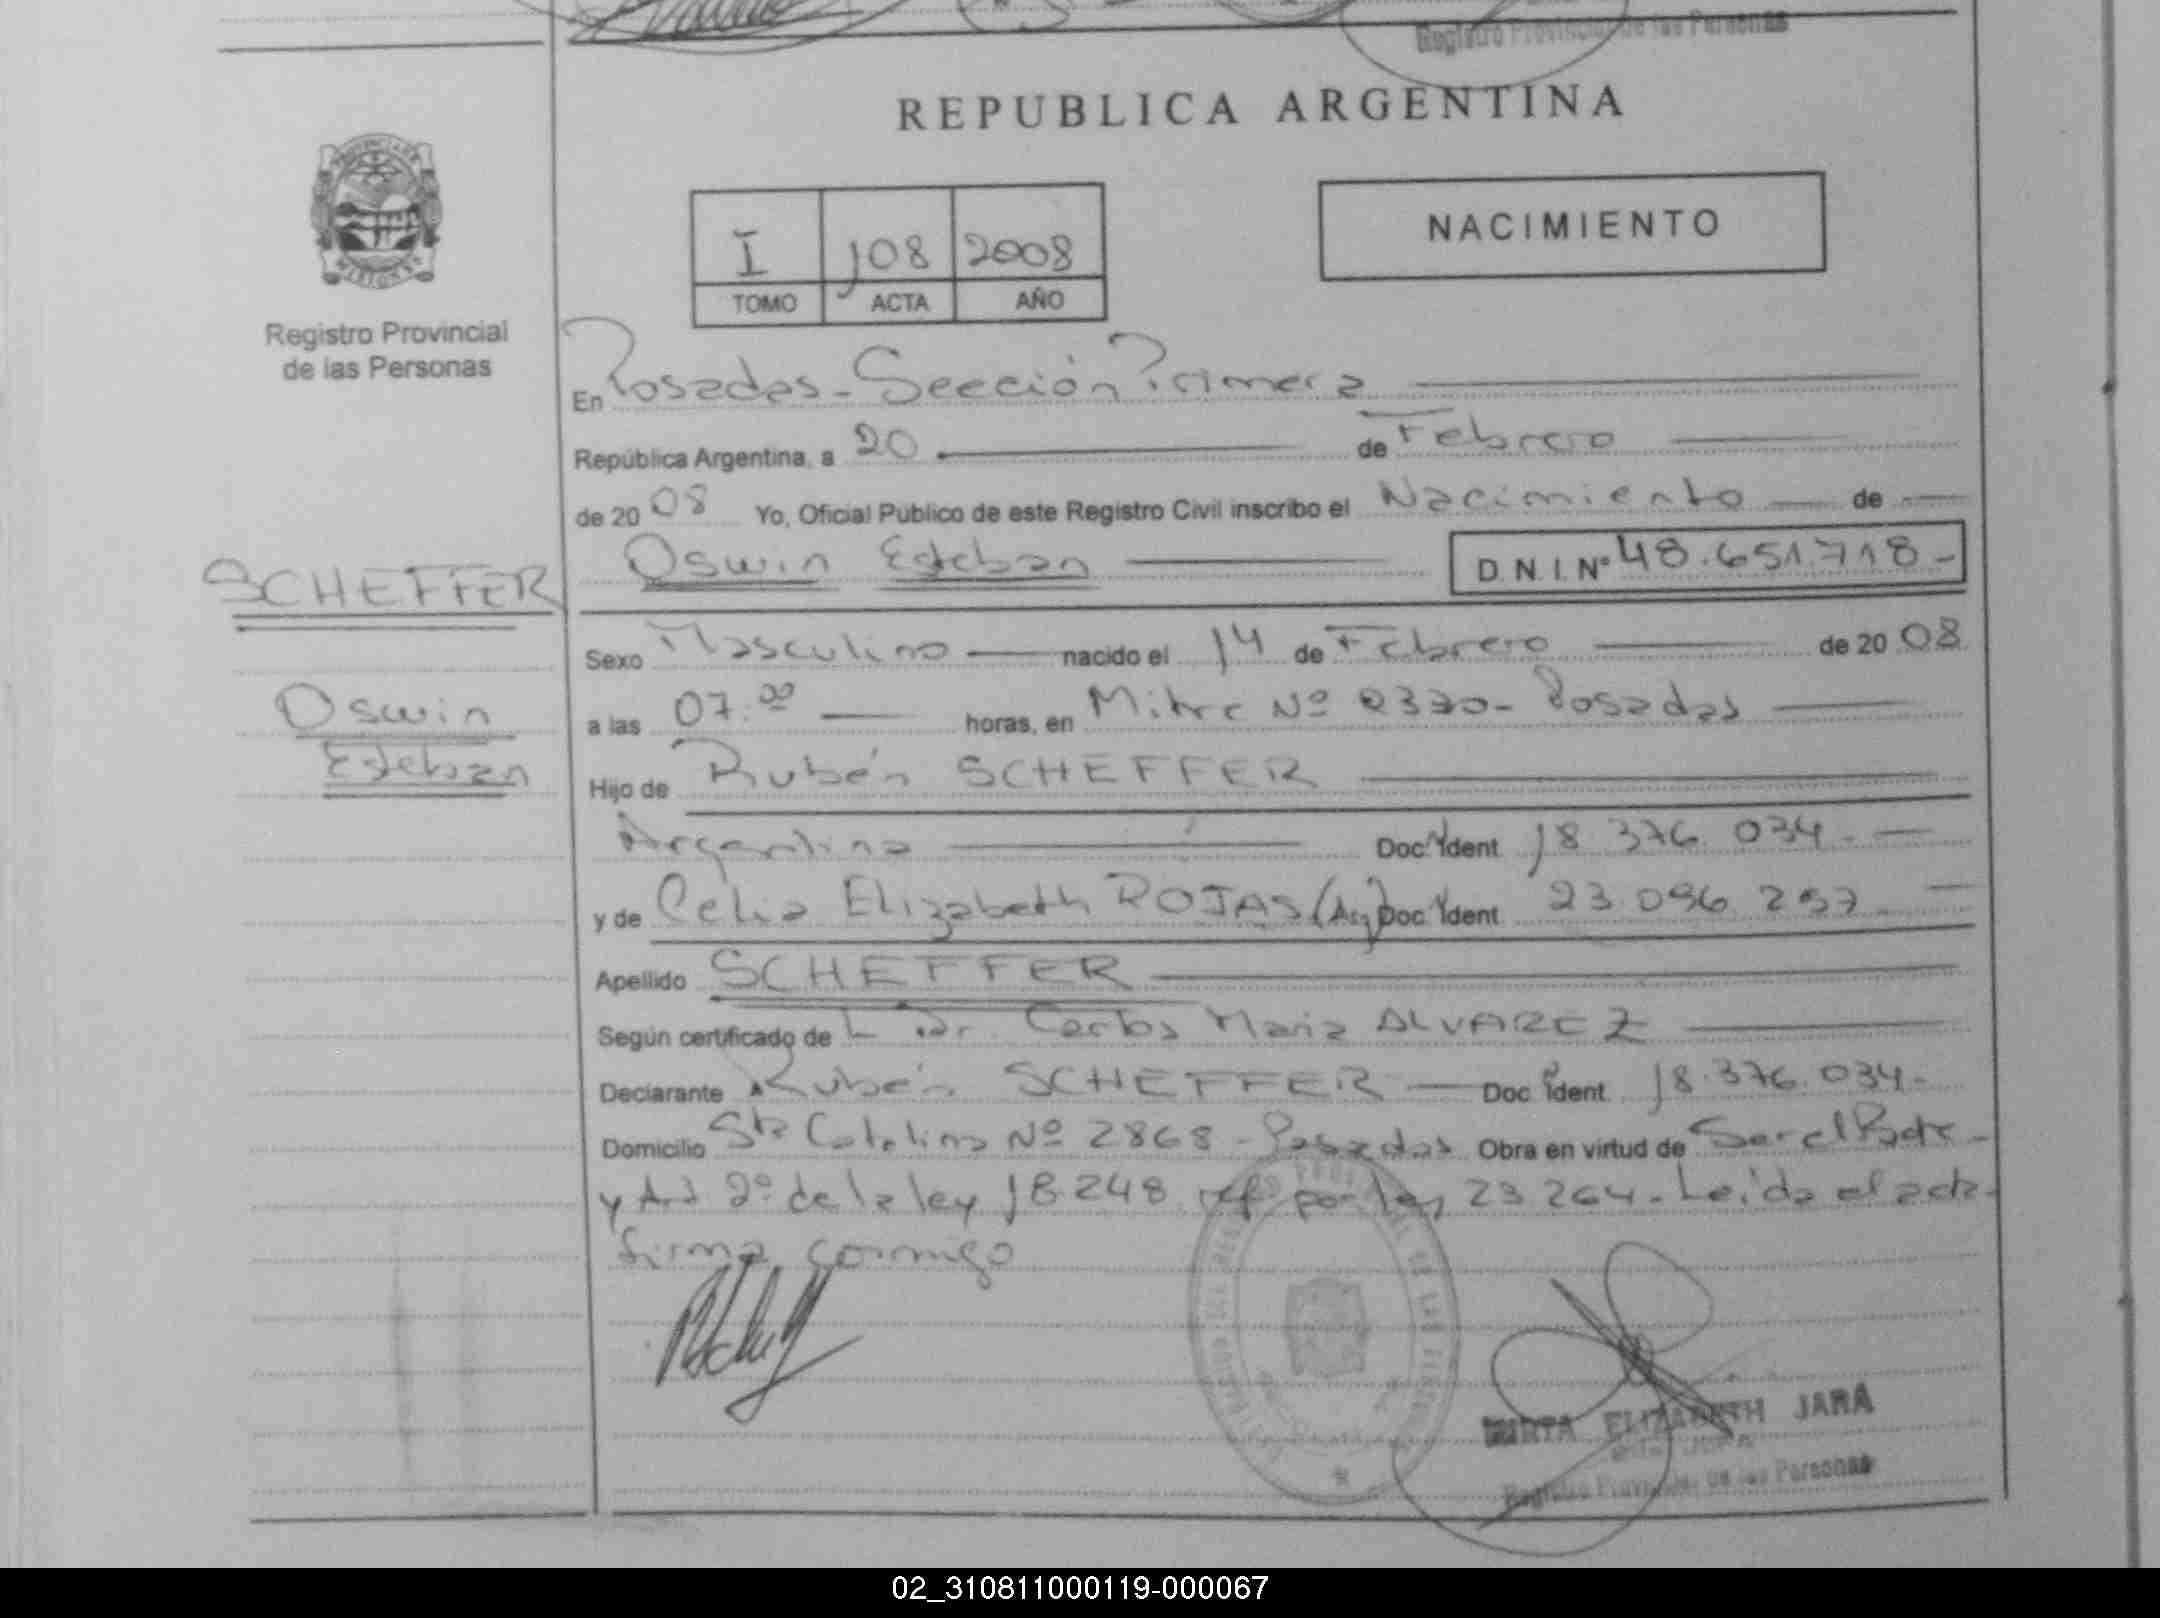 Registro Provincial de las Personas
REPUBLICA ARGENTINA
PROVINCIA DE
MISIONES
Registro Provincial
de las Personas
I 108 2008
TOMO ACTA AÑO
NACIMIENTO
En Posadas - Sección Primera
República Argentina, a 20 de Febrero
de 2008 Yo, Oficial Público de este Registro Civil inscribo el Nacimiento de
Oswin Esteban D.N.I. Nº 48.651.718-
SCHEFFER
Sexo Masculino nacido el 14 de Febrero de 2008
Oswin
Esteban
a las 07:00 horas, en Mitre Nº 2370 - Posadas
Hijo de Rubén SCHEFFER
Argentina Doc. Ident 18.376.034-
y de Celia Elizabeth ROJAS (Arg) Doc. Ident 23.096.297-
Apellido SCHEFFER
Según certificado de L Dr. Carlos Maria ALVAREZ
Declarante Rubén SCHEFFER Doc Ident 18.376.034-
Domicilio Sta Catalina Nº 2868 - Posadas Obra en virtud de Ser el Padre -
y Art 2º de la ley 18.248 ref por ley 23.264 - Leída el acta
firma conmigo
MIRTA ELIZABETH JARA
Registro Provincial de las Personas
02_310811000119-000067